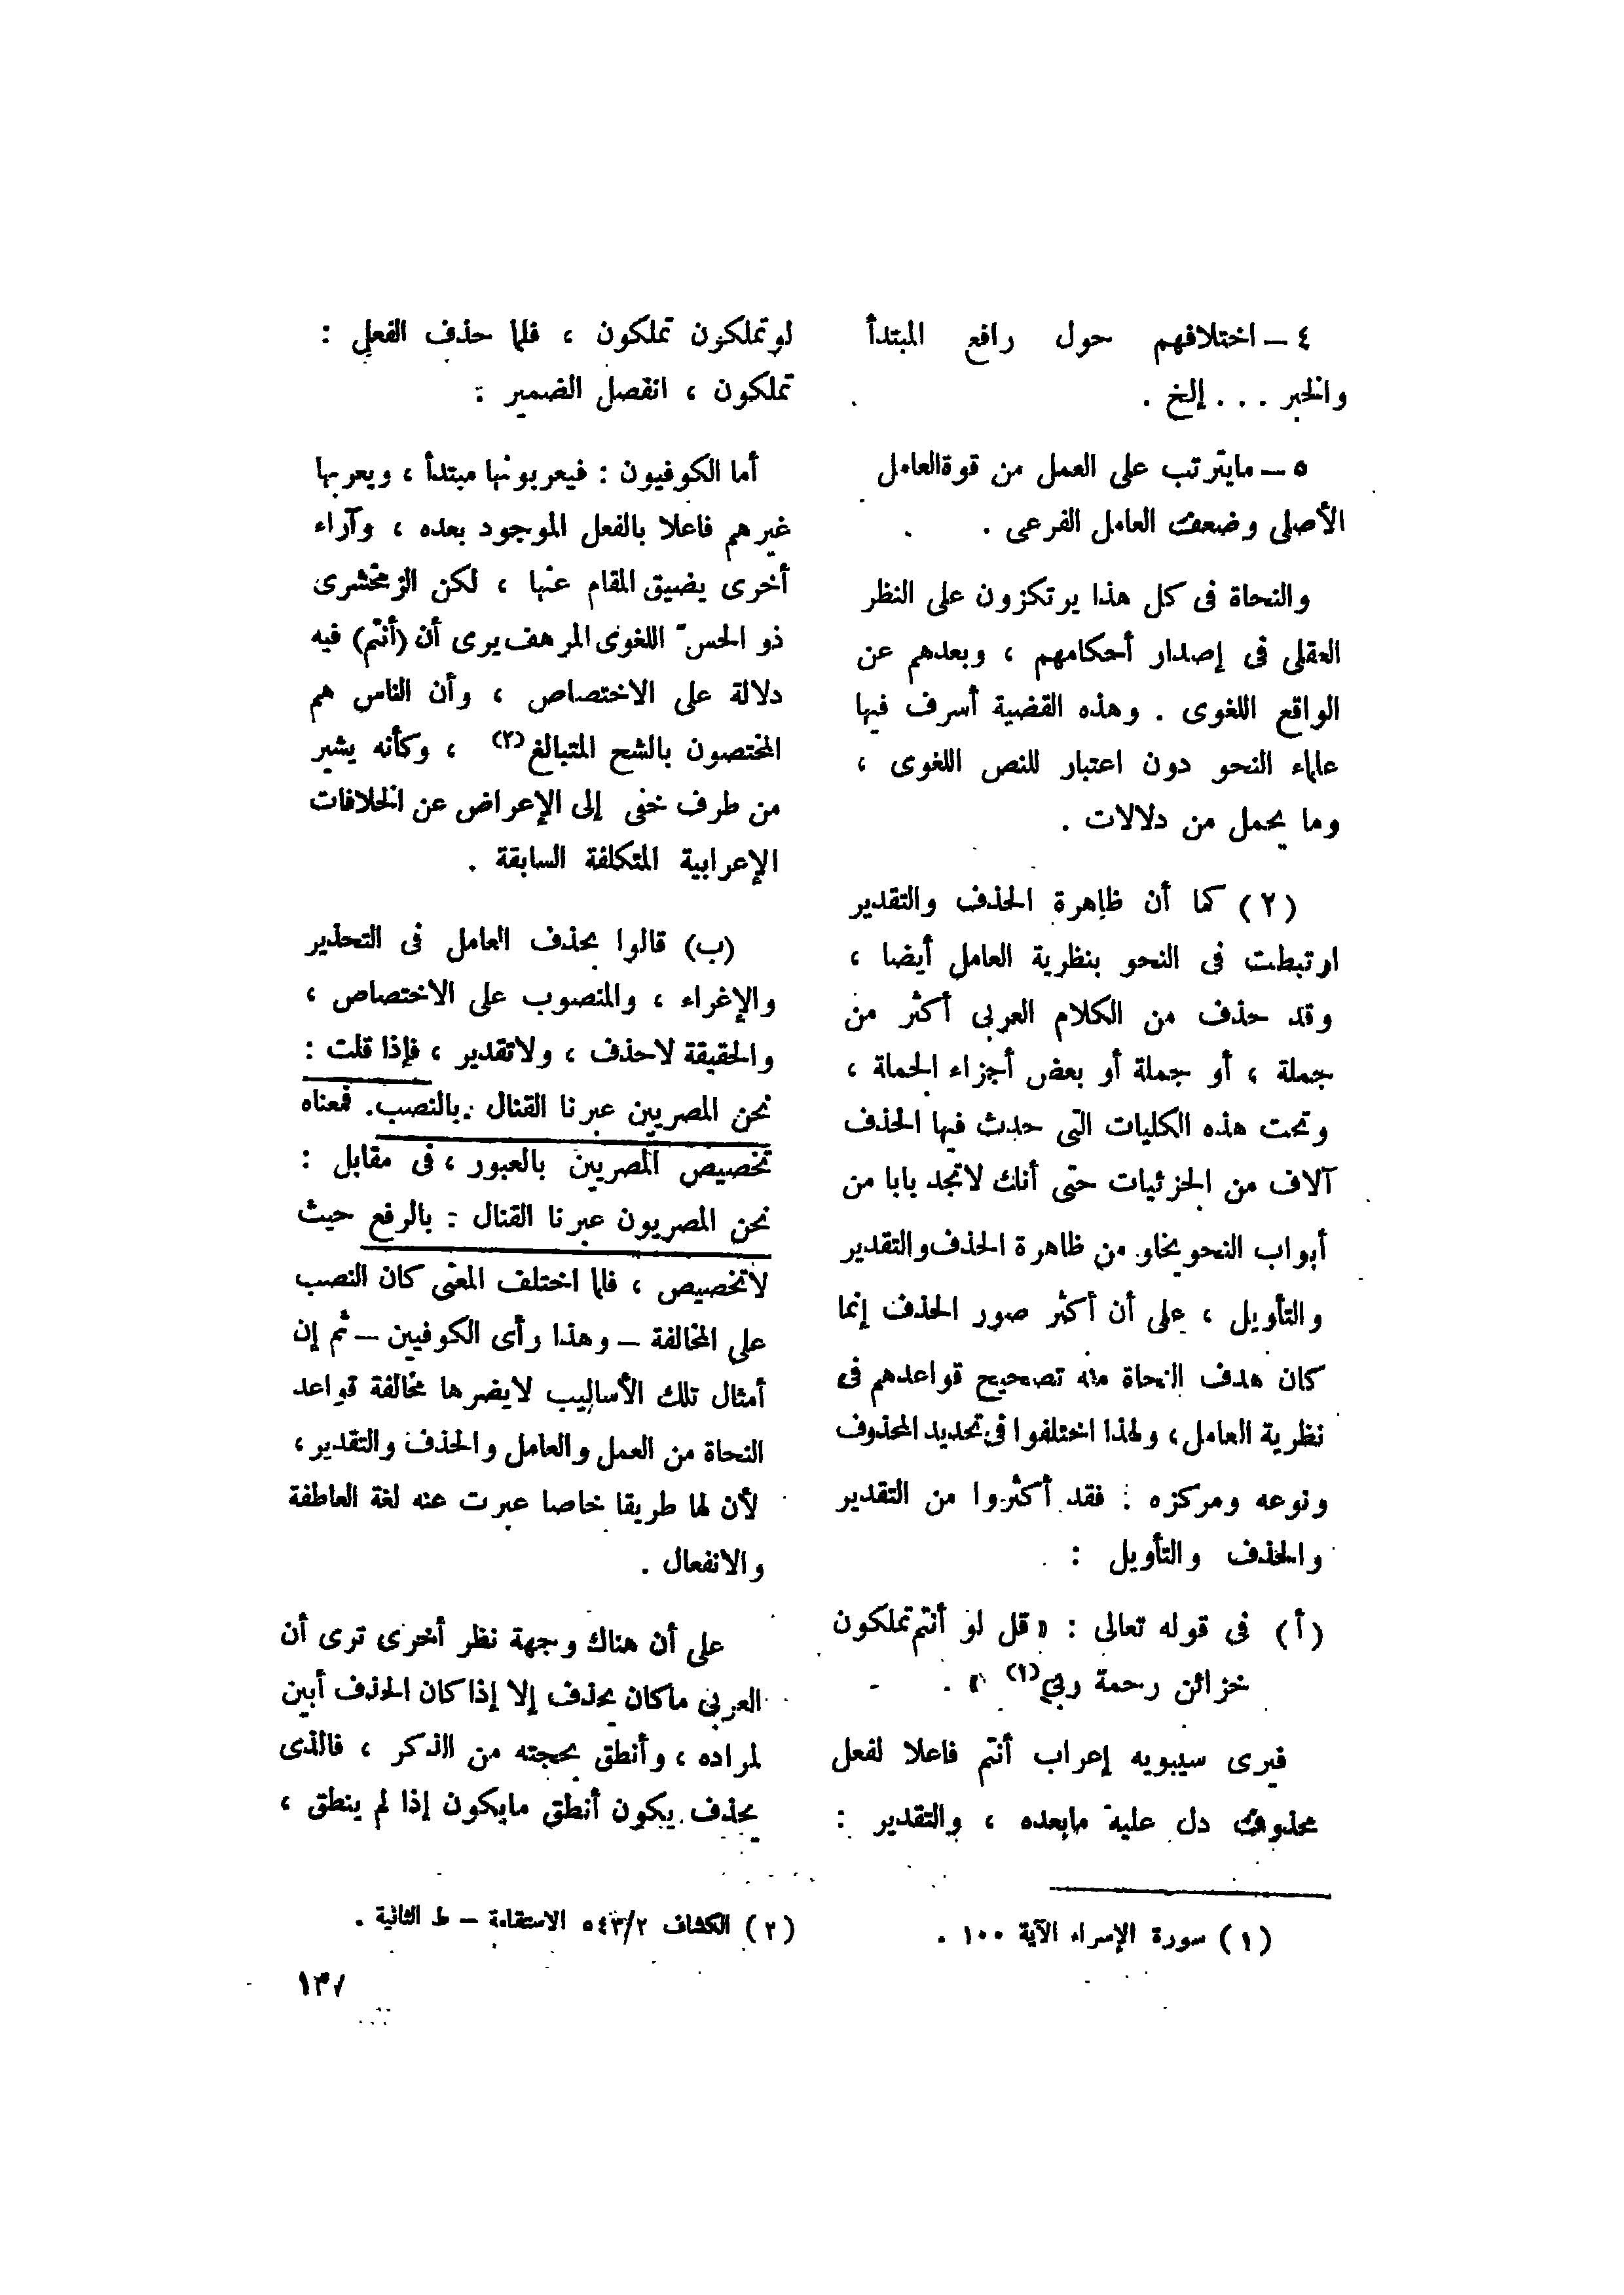 ٤ – اختلافهم حول رافع المبتدأ
والخبر . . . إلخ .
٥ – مايترتب على العمل من قوةالعامل
الأصلى وضعف العامل الفرعى .
والنحاة فى كل هذا يرتكزون على النظر
العقلى فى إصدار أحكامهم ، وبعدهم عن
الواقع اللغوى . وهذه القضية أسرف فيها
علماء النحو دون اعتبار للنص اللغوى ،
وما يحمل من دلالات .
(٢) كما أن ظاهرة الحذف والتقدير
ارتبطت فى النحو بنظرية العامل أيضا ،
وقد حذف من الكلام العربى أكثر من
جملة ، أو جملة أو بعض أجزاء الجملة ،
وتحت هذه الكليات التى حدث فيها الحذف
آلاف من الجزئيات حتى أنك لاتجد بابا من
أبواب النحو يخلو من ظاهرة الحذف والتقدير
والتأويل ، على أن أكثر صور الحذف إنما
كان هدف النحاة منه تصحيح قواعدهم فى
نظرية العامل ، ولهذا اختلفوا فى تحديد المحذوف
ونوعه ومركزه : فقد أكثروا من التقدير
والحذف والتأويل :
(أ) فى قوله تعالى : « قل لو أنتم تملكون
خزائن رحمة ربي(١) » .
فيرى سيبويه إعراب أنتم فاعلا لفعل
محذوف دل عليه مابعده ، والتقدير :
(١) سورة الإسراء الآية ١٠٠ .
لوتملكون تملكون ، فلما حذف الفعل :
تملكون ، انفصل الضمير :
أما الكوفيون : فيعربونها مبتدأ ، ويعربها
غيرهم فاعلا بالفعل الموجود بعده ، وآراء
أخرى يضيق المقام عنها ، لكن الزمخشرى
ذو الحسّ اللغوى المرهف يرى أن (أنتم) فيه
دلالة على الاختصاص ، وأن الناس هم
المختصون بالشح المتبالغ(٢) ، وكأنه يشير
من طرف خفى إلى الإعراض عن الخلافات
الإعرابية المتكلفة السابقة .
(ب) قالوا بحذف العامل فى التحذير
والإغراء ، والمنصوب على الاختصاص ،
والحقيقة لاحذف ، ولاتقدير ، فإذا قلت :
نحن المصريين عبرنا القنال . بالنصب. فمعناه
تخصيص المصريين بالعبور ، فى مقابل :
نحن المصريون عبرنا القنال : بالرفع حيث
لاتخصيص ، فلما اختلف المعنى كان النصب
على المخالفة – وهذا رأى الكوفيين – ثم إن
أمثال تلك الأساليب لايضرها مخالفة قواعد
النحاة من العمل والعامل والحذف والتقدير ،
لأن لها طريقا خاصا عبرت عنه لغة العاطفة
والانفعال .
على أن هناك وجهة نظر أخرى ترى أن
العربى ماكان يحذف إلا إذا كان الحذف أبين
لمراده ، وأنطق بحجته من الذكر ، فالذى
يحذف يكون أنطق مايكون إذا لم ينطق ،
(٢) الكشاف ٥٤٣/٢ الاستقامة – ط الثانية .
١٣٧